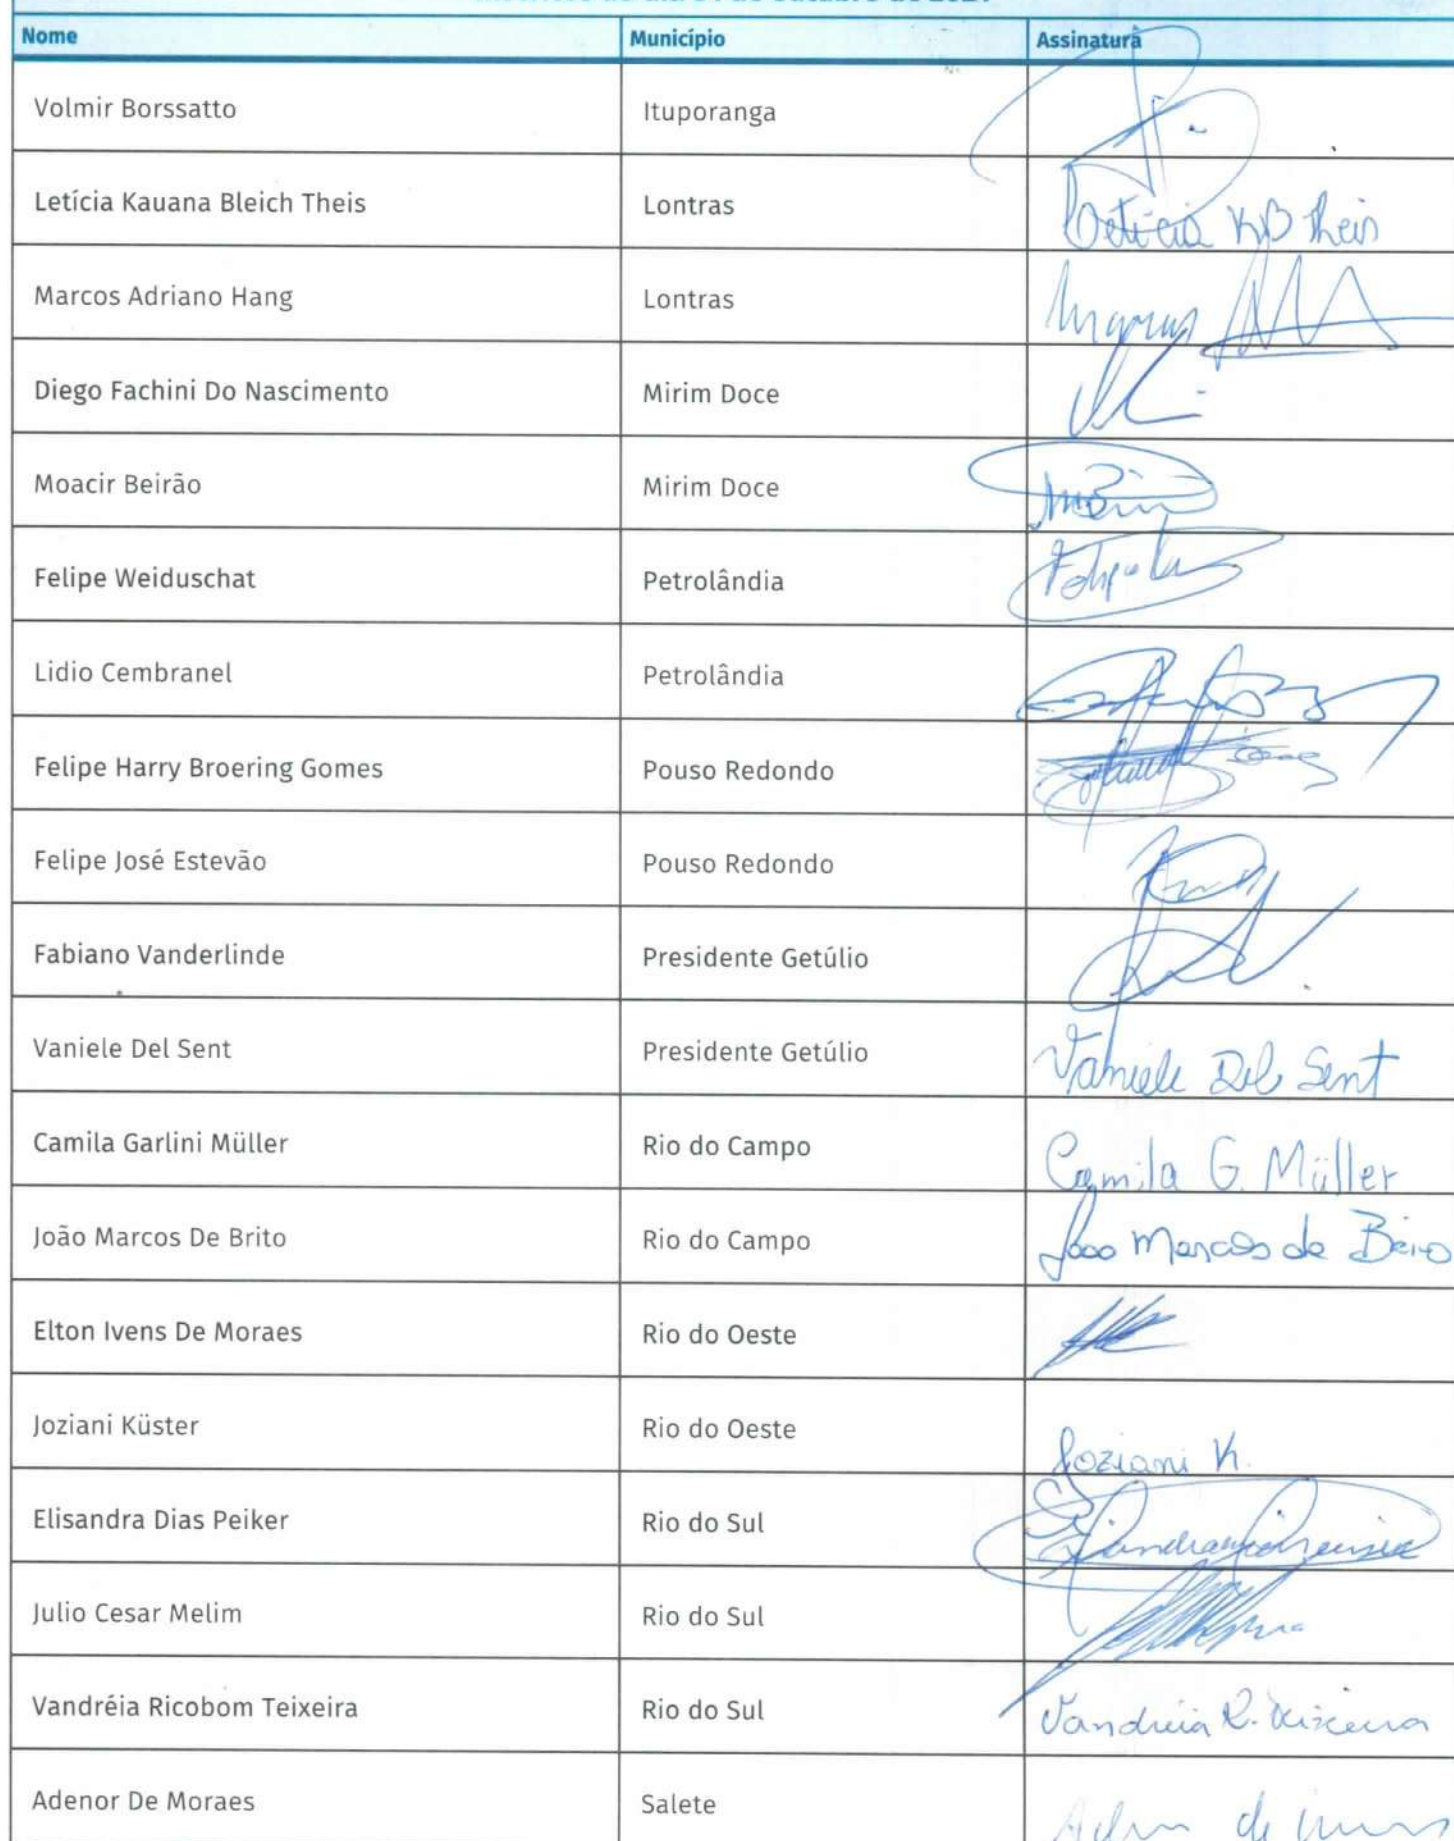 Nome Município Assinatura
Volmir Borssatto Ituporanga
Letícia Kauana Bleich Theis Lontras Letícia KB Theis
Marcos Adriano Hang Lontras Marcos
Diego Fachini Do Nascimento Mirim Doce
Moacir Beirão Mirim Doce
Felipe Weiduschat Petrolândia Felipe
Lidio Cembranel Petrolândia
Felipe Harry Broering Gomes Pouso Redondo
Felipe José Estevão Pouso Redondo
Fabiano Vanderlinde Presidente Getúlio
Vaniele Del Sent Presidente Getúlio Vaniele Del Sent
Camila Garlini Müller Rio do Campo Camila G. Müller
João Marcos De Brito Rio do Campo João Marcos de Brito
Elton Ivens De Moraes Rio do Oeste
Joziani Küster Rio do Oeste Joziani K.
Elisandra Dias Peiker Rio do Sul
Julio Cesar Melim Rio do Sul
Vandréia Ricobom Teixeira Rio do Sul Vandréia R. Teixeira
Adenor De Moraes Salete